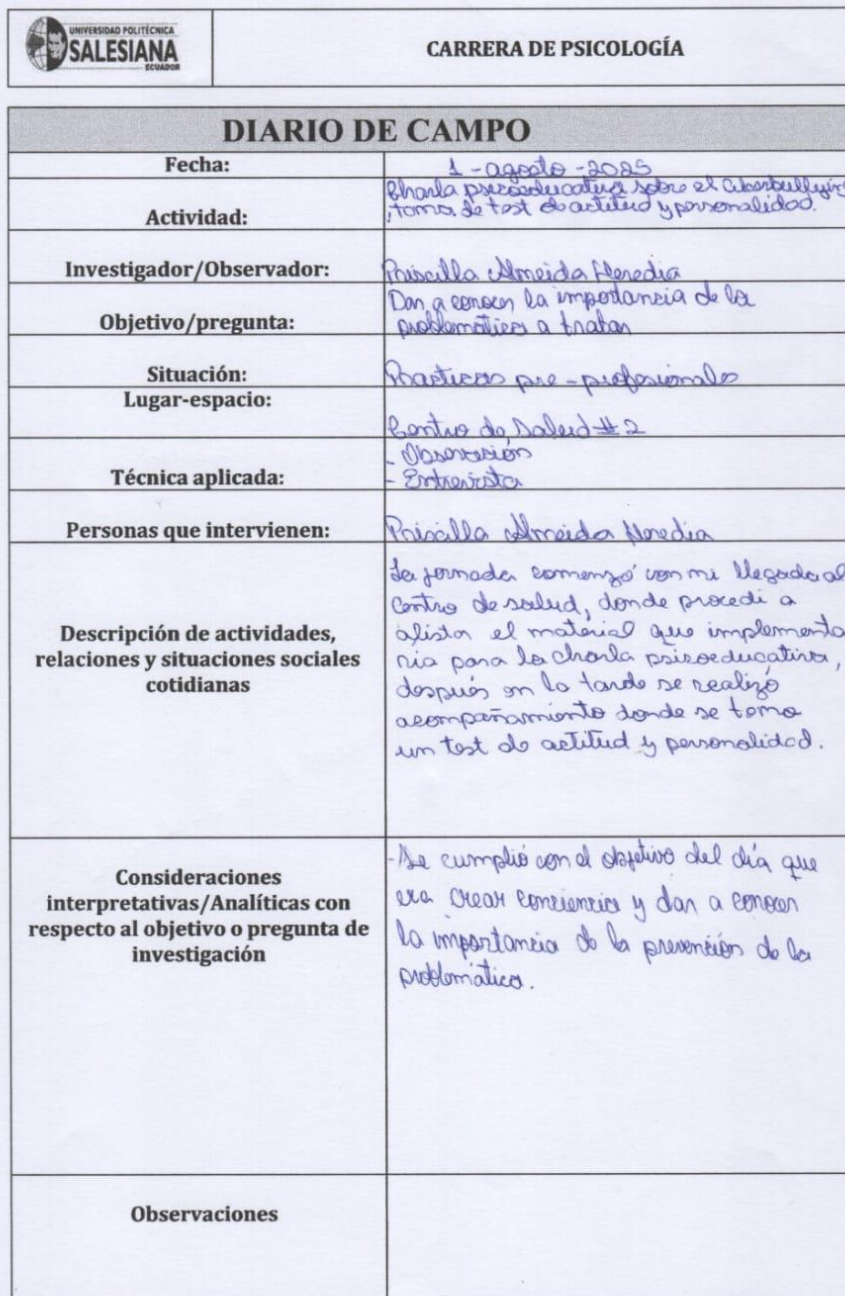 UNIVERSIDAD POLITÉCNICA
SALESIANA
ECUADOR
CARRERA DE PSICOLOGÍA
DIARIO DE CAMPO
Fecha:
1 - agosto - 2025
Actividad:
Charla psicoeducativa sobre el Ciberbullying
, toma de test de actitud y personalidad.
Investigador/Observador:
Priscilla Almeida Heredia
Objetivo/pregunta:
Dar a conocer la importancia de la
problemática a tratar
Situación:
Practicas pre-profesionales
Lugar-espacio:
Centro de Salud #2
Técnica aplicada:
- Observación
- Entrevista
Personas que intervienen:
Priscilla Almeida Heredia
Descripción de actividades,
relaciones y situaciones sociales
cotidianas
La jornada comenzó con mi llegada al
centro de salud, donde procedi a
alistar el material que implementa
ria para la charla psicoeducativa,
después en la tarde se realizó
acompañamiento donde se tomo
un test de actitud y personalidad.
Consideraciones
interpretativas/Analíticas con
respecto al objetivo o pregunta de
investigación
- Se cumplió con el objetivo del día que
era crear conciencia y dar a conocer
la importancia de la prevención de la
problemática.
Observaciones